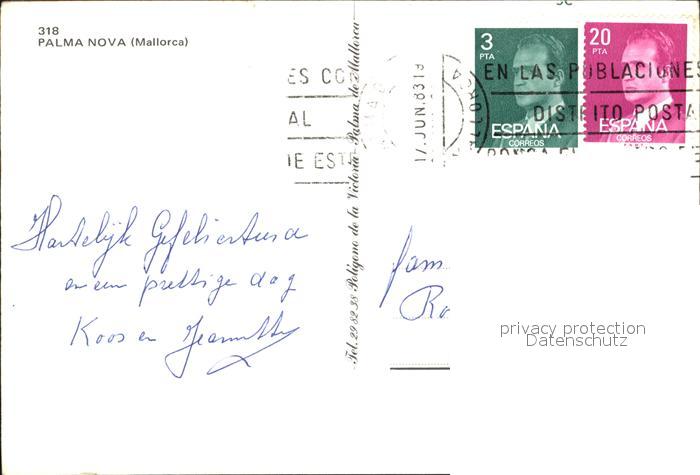 318
PALMA NOVA (Mallorca)
3
PTA
ESPAÑA
CORREOS
20
PTA
ESPAÑA
CORREOS
ES CO
AL
DE EST
17. JUN. 83 19
EN LAS POBLACIONES
DISTRITO POSTA
PONGA EL
Tel. 29 82 38 Polígono de la Victoria - Palma de Mallorca
Hartelijk Gefeliciteerd
en een prettige dag
Koos en Jeannette
fam
Ro
privacy protection
Datenschutz